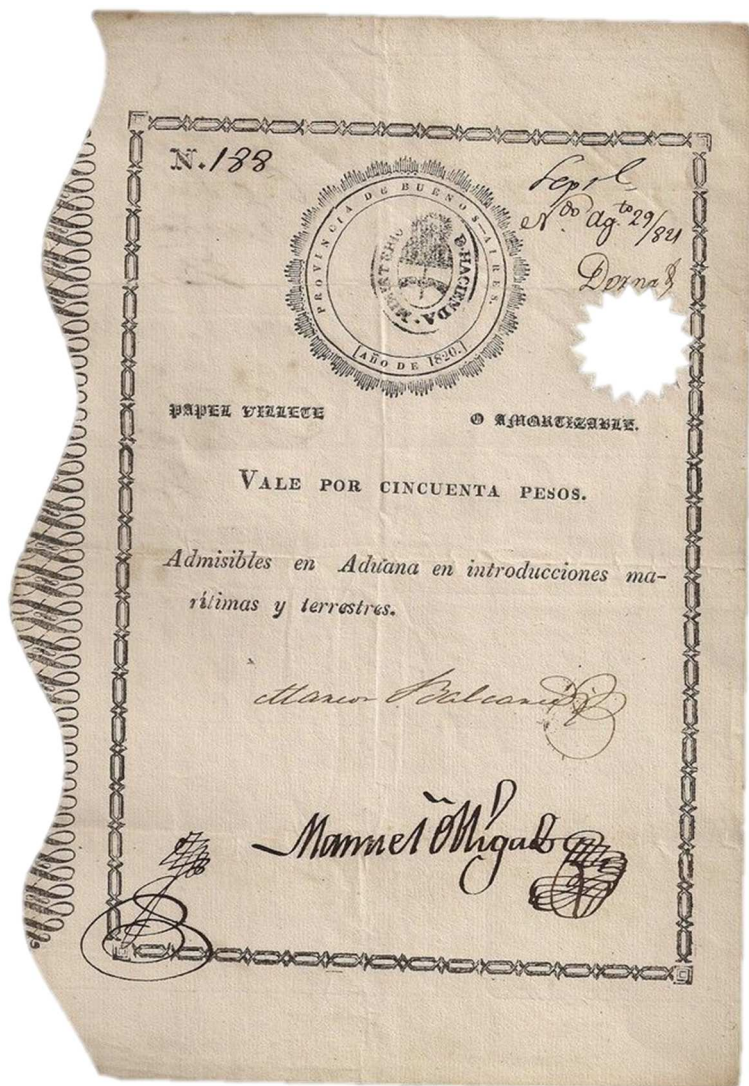 N. 188
PROVINCIA DE BUENOS-AIRES.
MINISTERIO D. HACIENDA.
AÑO DE 1820.
Agto 29/821
Dorna
PAPEL VILLETE O AMORTIZABLE.
VALE POR CINCUENTA PESOS.
Admisibles en Aduana en introducciones ma-
rítimas y terrestres.
Manuel